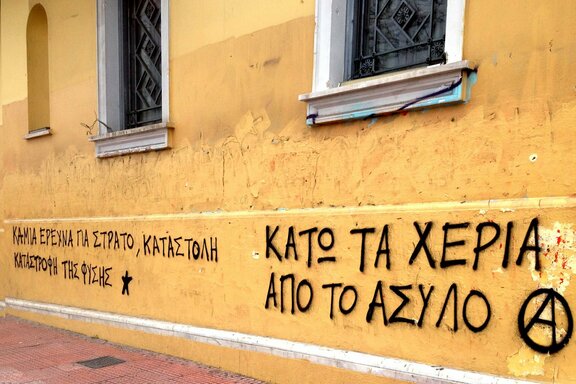 ΚΑΜΙΑ ΕΡΕΥΝΑ ΓΙΑ ΣΤΡΑΤΟ, ΚΑΤΑΣΤΟΛΗ
ΚΑΤΑΣΤΡΟΦΗ ΤΗΣ ΦΥΣΗΣ ★
ΚΑΤΩ ΤΑ ΧΕΡΙΑ
ΑΠΟ ΤΟ ΑΣΥΛΟ Ⓐ